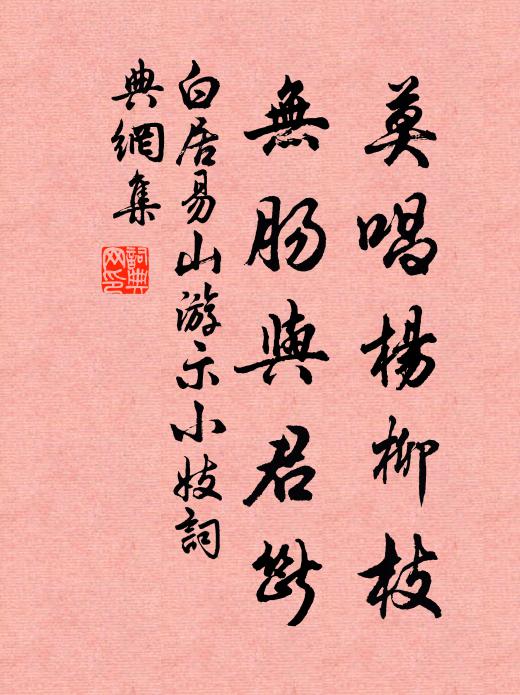 莫唱楊柳枝
無腸與君斷
白居易山游示小妓詞
典網集
詞典
网印